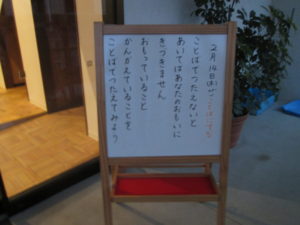 2月14日(水)
ことばでつたえないと
あいてはあなたのおもいに
きづきません
おもっていること
かんがえていることを
ことばでつたえてみよう